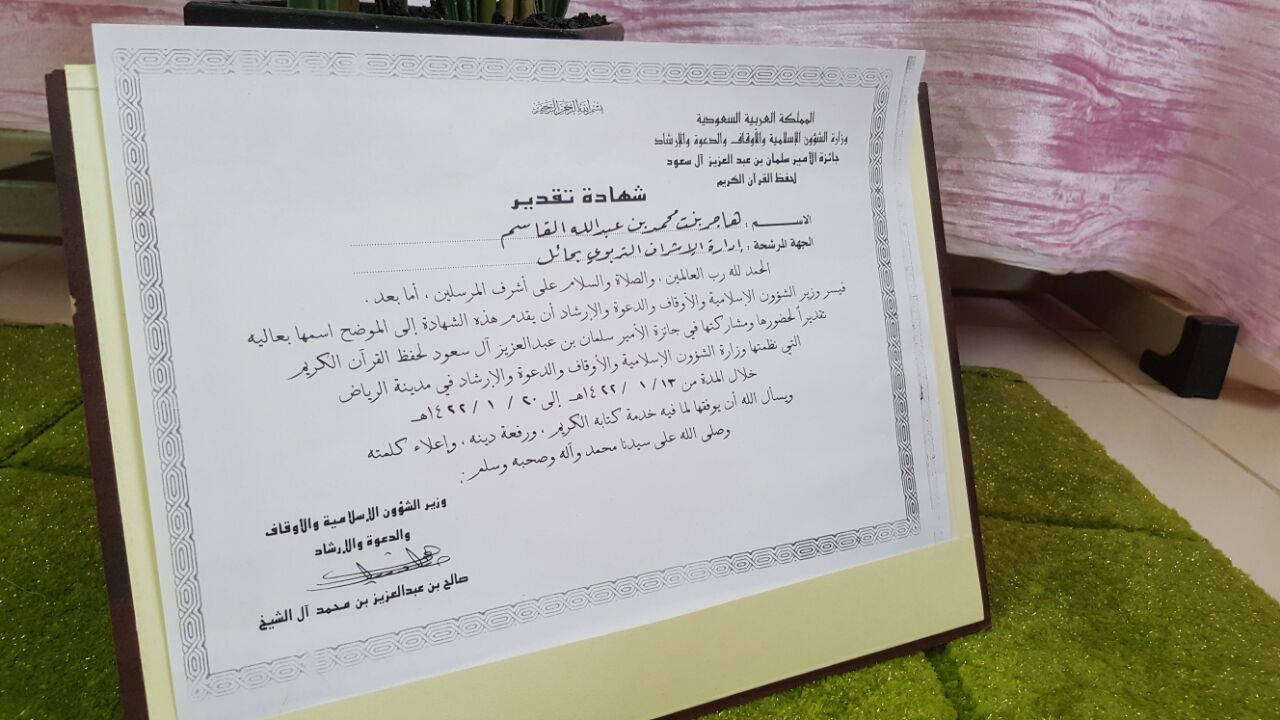 بسم الله الرحمن الرحيم
المملكة العربية السعودية
وزارة الشؤون الإسلامية والأوقاف والدعوة والإرشاد
جائزة الأمير سلمان بن عبد العزيز آل سعود
لحفظ القرآن الكريم
شهادة تقدير
الاسم : هاجر بنت محمد بن عبدالله القاسم
الجهة المرشحة : إدارة الاشراف التربوي بحائل
الحمد لله رب العالمين ، والصلاة والسلام على أشرف المرسلين ، أما بعد .
فيسر وزير الشؤون الإسلامية والأوقاف والدعوة والإرشاد أن يقدم هذه الشهادة إلى الموضح اسمها بعاليه
تقديراً لحضورها ومشاركتها في جائزة الأمير سلمان بن عبدالعزيز آل سعود لحفظ القرآن الكريم
التي نظمتها وزارة الشؤون الإسلامية والأوقاف والدعوة والإرشاد في مدينة الرياض
خلال المدة من ١٣ / ١ / ١٤٢٢هـ إلى ٢٠ / ١ / ١٤٢٢هـ
ويسأل الله أن يوفقها لما فيه خدمة كتابه الكريم ، ورفعة دينه ، وإعلاء كلمته
وصلى الله على سيدنا محمد وآله وصحبه وسلم .
وزير الشؤون الإسلامية والأوقاف
والدعوة والإرشاد
صالح بن عبدالعزيز بن محمد آل الشيخ